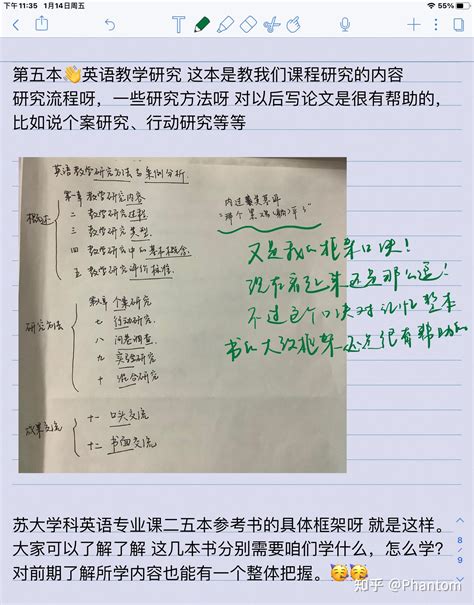 下午11:35 1月14日周五
55%
第五本👋英语教学研究 这本是教我们课程研究的内容
研究流程呀，一些研究方法呀 对以后写论文是很有帮助的，
比如说个案研究、行动研究等等
英语教学研究方法与案例分析.
概述
第一章 教学研究内容
二 教学研究过程
三 教学研究类型
四 教学研究中的基本概念.
五 教学研究评价标准.
研究方法
第六章 个案研究
七 行动研究.
八 问卷调查.
九 实验研究
十 混合研究
成果交流
十一 口头交流
十二 书面交流
内过类基评
又是我的框架口诀！
现在看起来还是那么逗！
不过这个口诀对记忆整本
书的大致框架还是很有帮助的
苏大学科英语专业课二五本参考书的具体框架呀 就是这样。
大家可以了解了解 这几本书分别需要咱们学什么，怎么学？
对前期了解所学内容也能有一个整体把握。🥳🥳
8
9
知乎 @Phantom